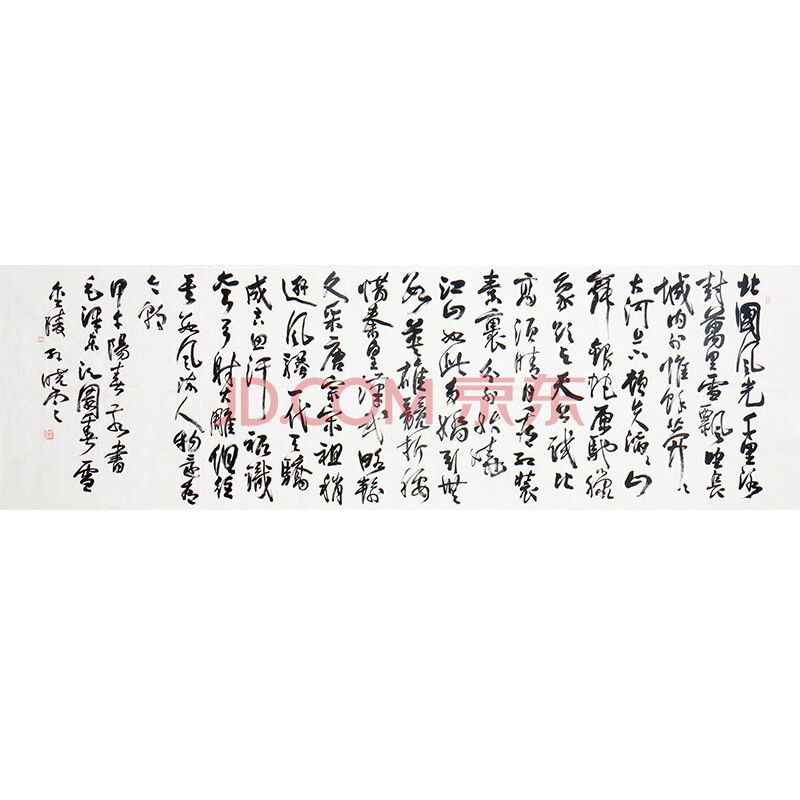 北國風光千里冰
封萬里雪飄望長
城内外惟餘莽〻
大河上下頓失滔〻山
舞銀蛇原馳蠟
象欲與天公試比
高須晴日看紅裝
素裹分外妖嬈
江山如此多嬌引無
數英雄競折腰
惜秦皇漢武略輸
文采唐宗宋祖稍
遜風騷一代天驕
成吉思汗祇識
彎弓射大雕俱往
矣數風流人物還看
今朝
甲午陽春 書
毛澤東沁園春雪
金陵 曉雲
JD.COM 京东